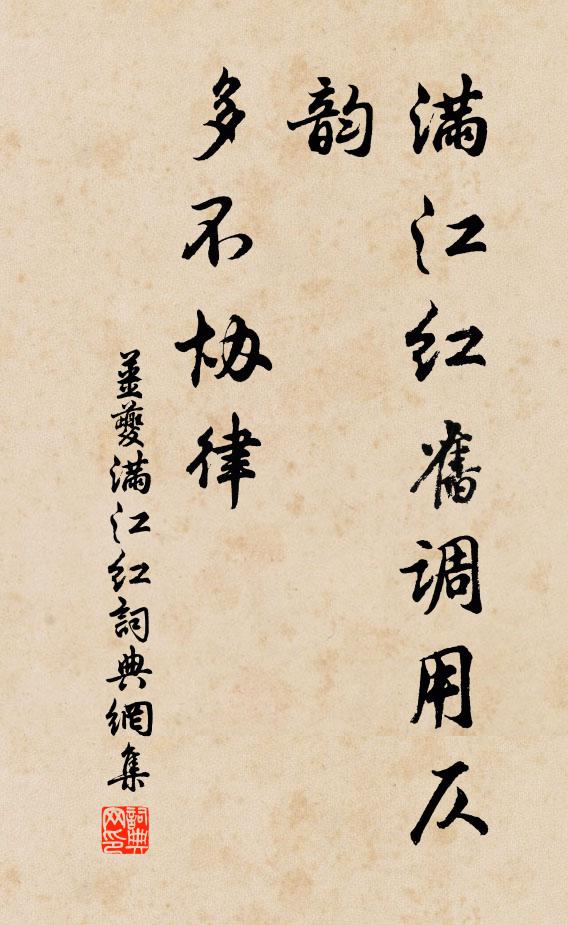 满江红舊调用仄
韵
多不协律
姜夔满江红詞典網集
詞典网印